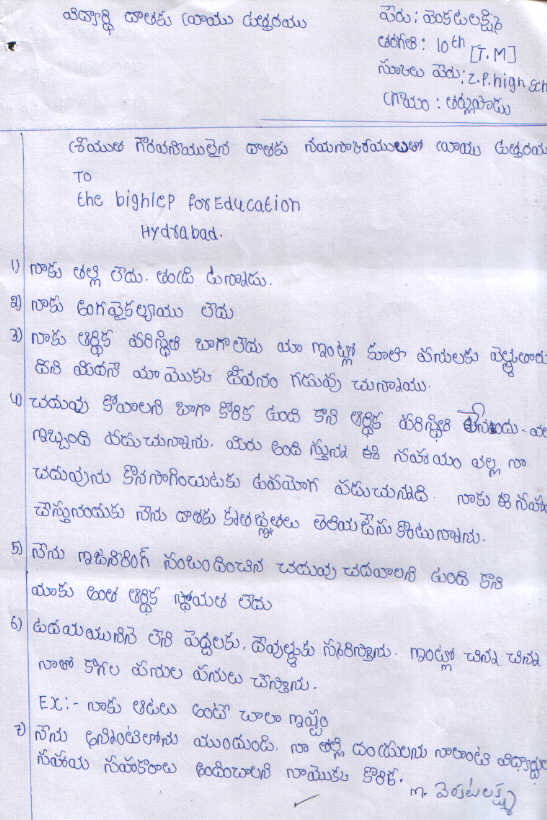 విద్యార్థి దాతకు వ్రాయు ఉత్తరము
పేరు: వెంకటలక్ష్మి
తరగతి: 10th [T.M]
స్కూలు పేరు: Z.P.high sch
గ్రామం :
శ్రీయుత గౌరవనీయులైన దాతకు నమస్కారములతో వ్రాయు ఉత్తరము
TO
the bighlep for Education
Hydrabad.
1) నాకు తల్లి లేదు. తండ్రి ఉన్నాడు.
2) నాకు అంగవైకల్యాము లేదు
3) నాకు ఆర్థిక పరిస్థితి బాగాలేదు మా ఇంట్లో కూలి పనులకు వెళ్ళుతారు
దాని మీదనే మా యొక్క జీవనం గడుపు చున్నాము.
4) చదువు కోవాలని బాగా కోరిక ఉంది కాని ఆర్థిక పరిస్థితి
ఇబ్బంది పడుచున్నాను. మీరు అంది స్తున్న ఈ సహాయం వల్ల నా
చదువును కొనసాగించుటకు ఉపయోగ పడుచున్నది. నాకు ఈ సహా
చేస్తునందుకు నేను దాతకు కృతజ్ఞతలు తెలియజేసు కొంటున్నాను.
5) నేను ఇంజనీరింగ్ సంబంధించిన చదువు చదవాలని ఉంది కాని
మాకు అంత ఆర్థిక స్థోమత లేదు
6) ఉదయమునే లేచి పెద్దలకు, దేవుళ్ళకు నమస్కరిస్తాను. ఇంట్లో చిన్న చిన్న
నాతో కాగల పనుల పనులు చేస్తాను.
EX:- నాకు ఆటలు అంటే చాలా ఇష్టం
7) నేను అన్నింటిలోను ముందుండి, నా తల్లి దండ్రులను నాలాంటి విద్యార్థుల
సహాయ సహకారాలు అందించాలని నాయొక్క కోరిక.
m. వెంకటలక్ష్మి